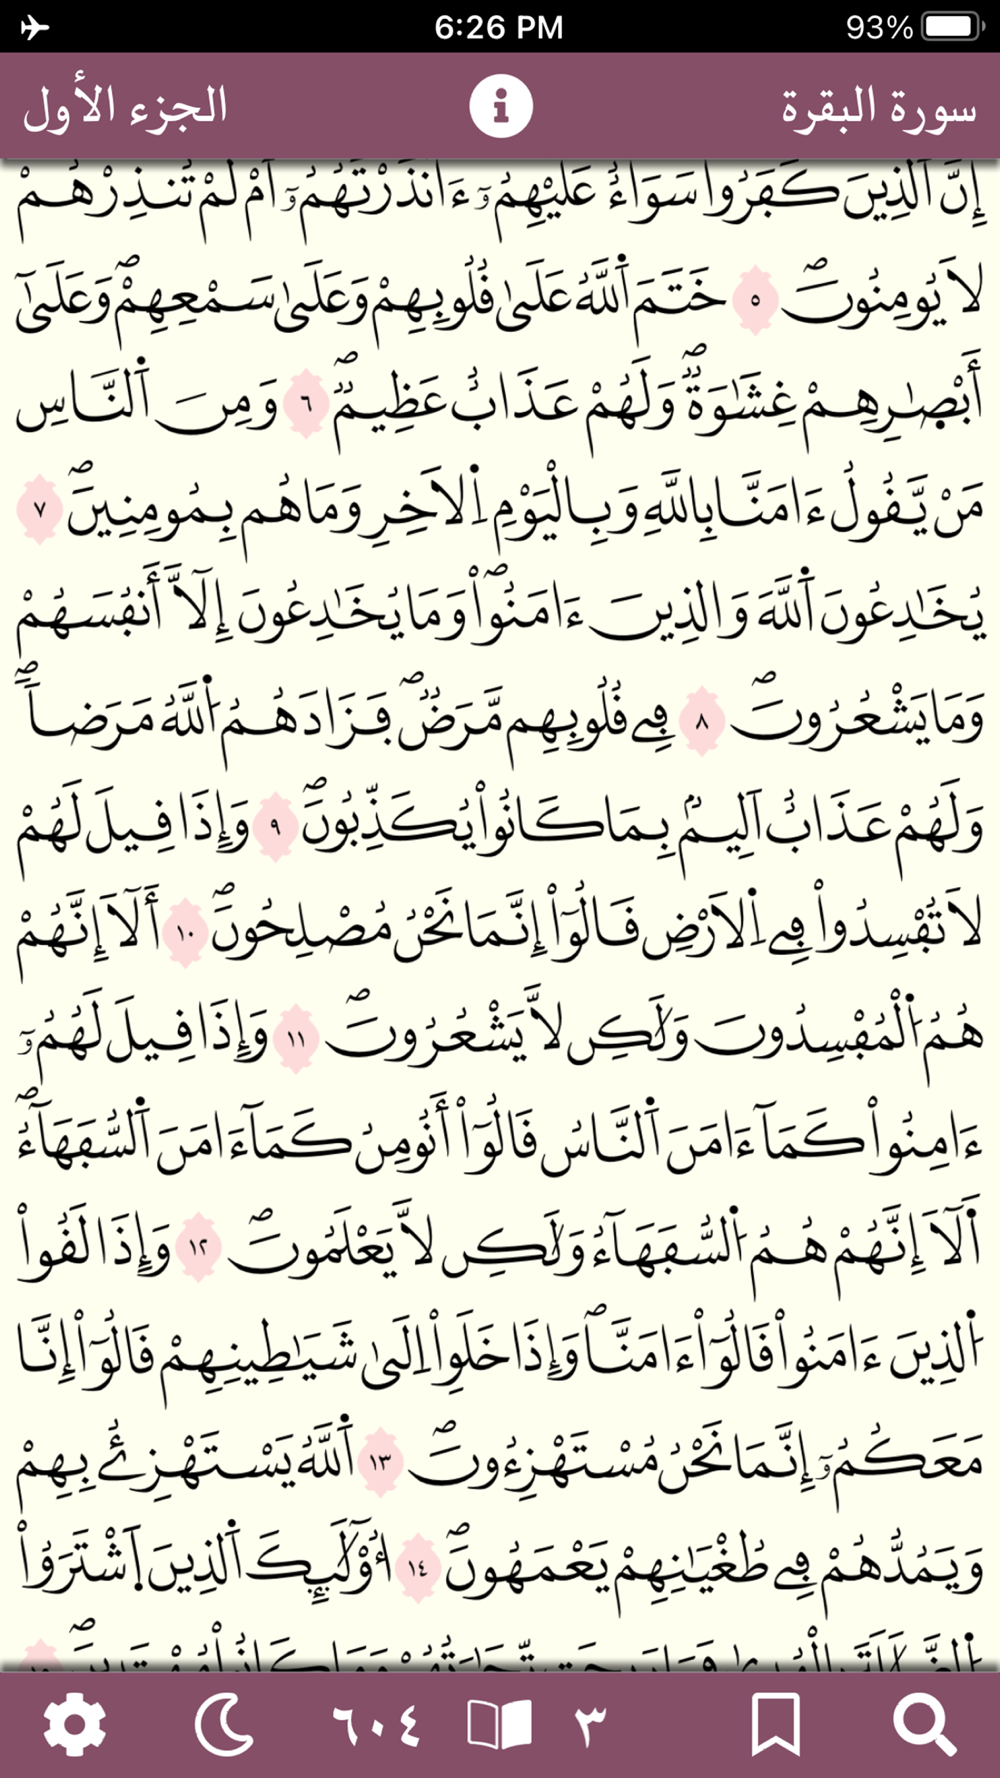 6:26 PM 93%
سورة البقرة الجزء الأول
إِنَّ اَ۬لذِينَ كَفَرُوا سَوَآءٌ عَلَيْهِمُۥٓ ءَآنذَرْتَهُمُۥٓ أَمْ لَمْ تُنذِرْهُمْ
لَا يُومِنُونَۖ ٥ خَتَمَ اَ۬للَّهُ عَلَىٰ قُلُوبِهِمْ وَعَلَىٰ سَمْعِهِمْۖ وَعَلَىٰٓ
أَبْصٰ۪رِهِمْ غِشَٰوَةٌۖ وَلَهُمْ عَذَابٌ عَظِيمٌۖ ٦ وَمِنَ اَ۬لنَّاسِ
مَنْ يَّقُولُ ءَامَنَّا بِاللَّهِ وَبِالْيَوْمِ اِ۬لَاخِرِ وَمَا هُم بِمُومِنِينَۖ ٧
يُخَٰدِعُونَ اَ۬للَّهَ وَالذِينَ ءَامَنُواْۖ وَمَا يُخَٰدِعُونَ إِلَّآ أَنفُسَهُمْ
وَمَا يَشْعُرُونَۖ ٨ فِے قُلُوبِهِم مَّرَضٌۖ فَزَادَهُمُ اُ۬للَّهُ مَرَضاٗۖ
وَلَهُمْ عَذَابٌ اَلِيمُۢ بِمَا كَانُواْ يُكَذِّبُونَۖ ٩ وَإِذَا قِيلَ لَهُمْ
لَا تُفْسِدُواْ فِے اِ۬لَارْضِ قَالُوٓاْ إِنَّمَا نَحْنُ مُصْلِحُونَۖ ١٠ أَلَآ إِنَّهُمْ
هُمُ اُ۬لْمُفْسِدُونَ وَلَٰكِن لَّا يَشْعُرُونَۖ ١١ وَإِذَا قِيلَ لَهُمُۥٓ
ءَامِنُواْ كَمَآ ءَامَنَ اَ۬لنَّاسُ قَالُوٓاْ أَنُومِنُ كَمَآ ءَامَنَ اَ۬لسُّفَهَآءُۖ
أَلَآ إِنَّهُمْ هُمُ اُ۬لسُّفَهَآءُ وَلَٰكِن لَّا يَعْلَمُونَۖ ١٢ وَإِذَا لَقُواْ
اُ۬لذِينَ ءَامَنُواْ قَالُوٓاْ ءَامَنَّاۖ وَإِذَا خَلَوِاْ اِلَىٰ شَيَٰطِينِهِمْ قَالُوٓاْ إِنَّا
مَعَكُمُۥٓ إِنَّمَا نَحْنُ مُسْتَهْزِءُونَۖ ١٣ اَ۬للَّهُ يَسْتَهْزِئُ بِهِمْ
وَيَمُدُّهُمْ فِے طُغْيَٰنِهِمْ يَعْمَهُونَۖ ١٤ أُوْلَٰٓئِكَ اَ۬لذِينَ اَ۪شْتَرَوُاْ
٣ ٦٠٤